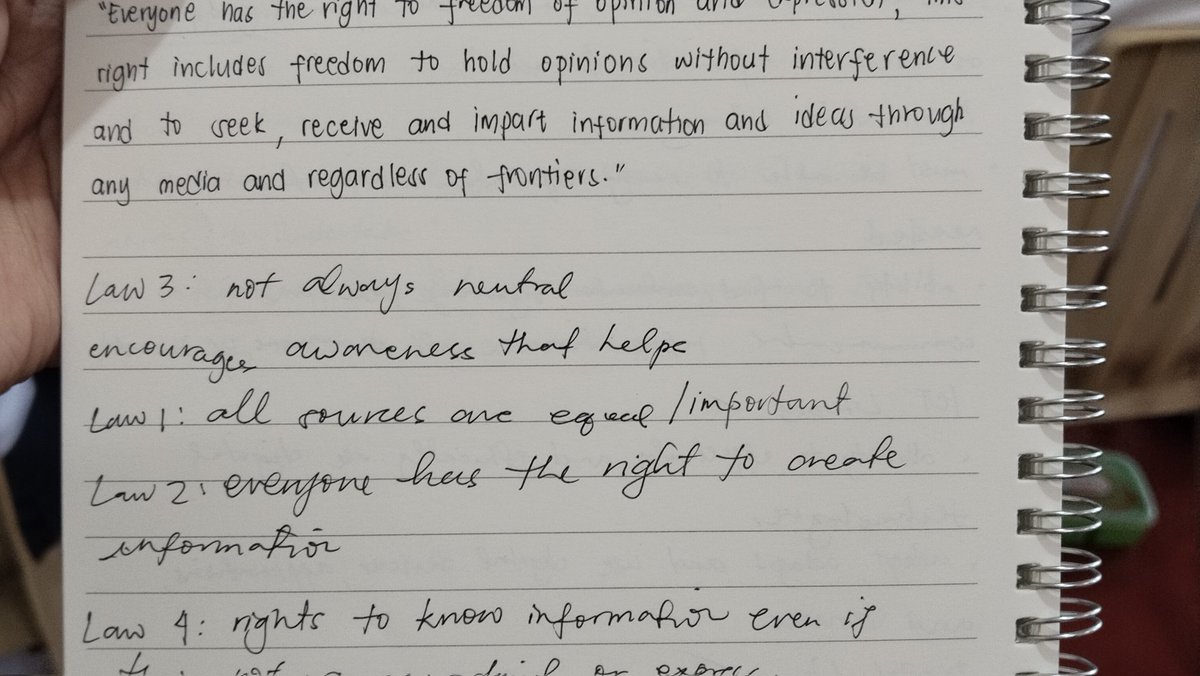 "Everyone has the right to freedom of opinion and expression, this
right includes freedom to hold opinions without interference
and to seek, receive and impart information and ideas through
any media and regardless of frontiers."
Law 3: not always neutral
encourages awareness that helps
Law 1: all sources are equal/important
Law 2: everyone has the right to create
information
Law 4: rights to know information even if
not or express